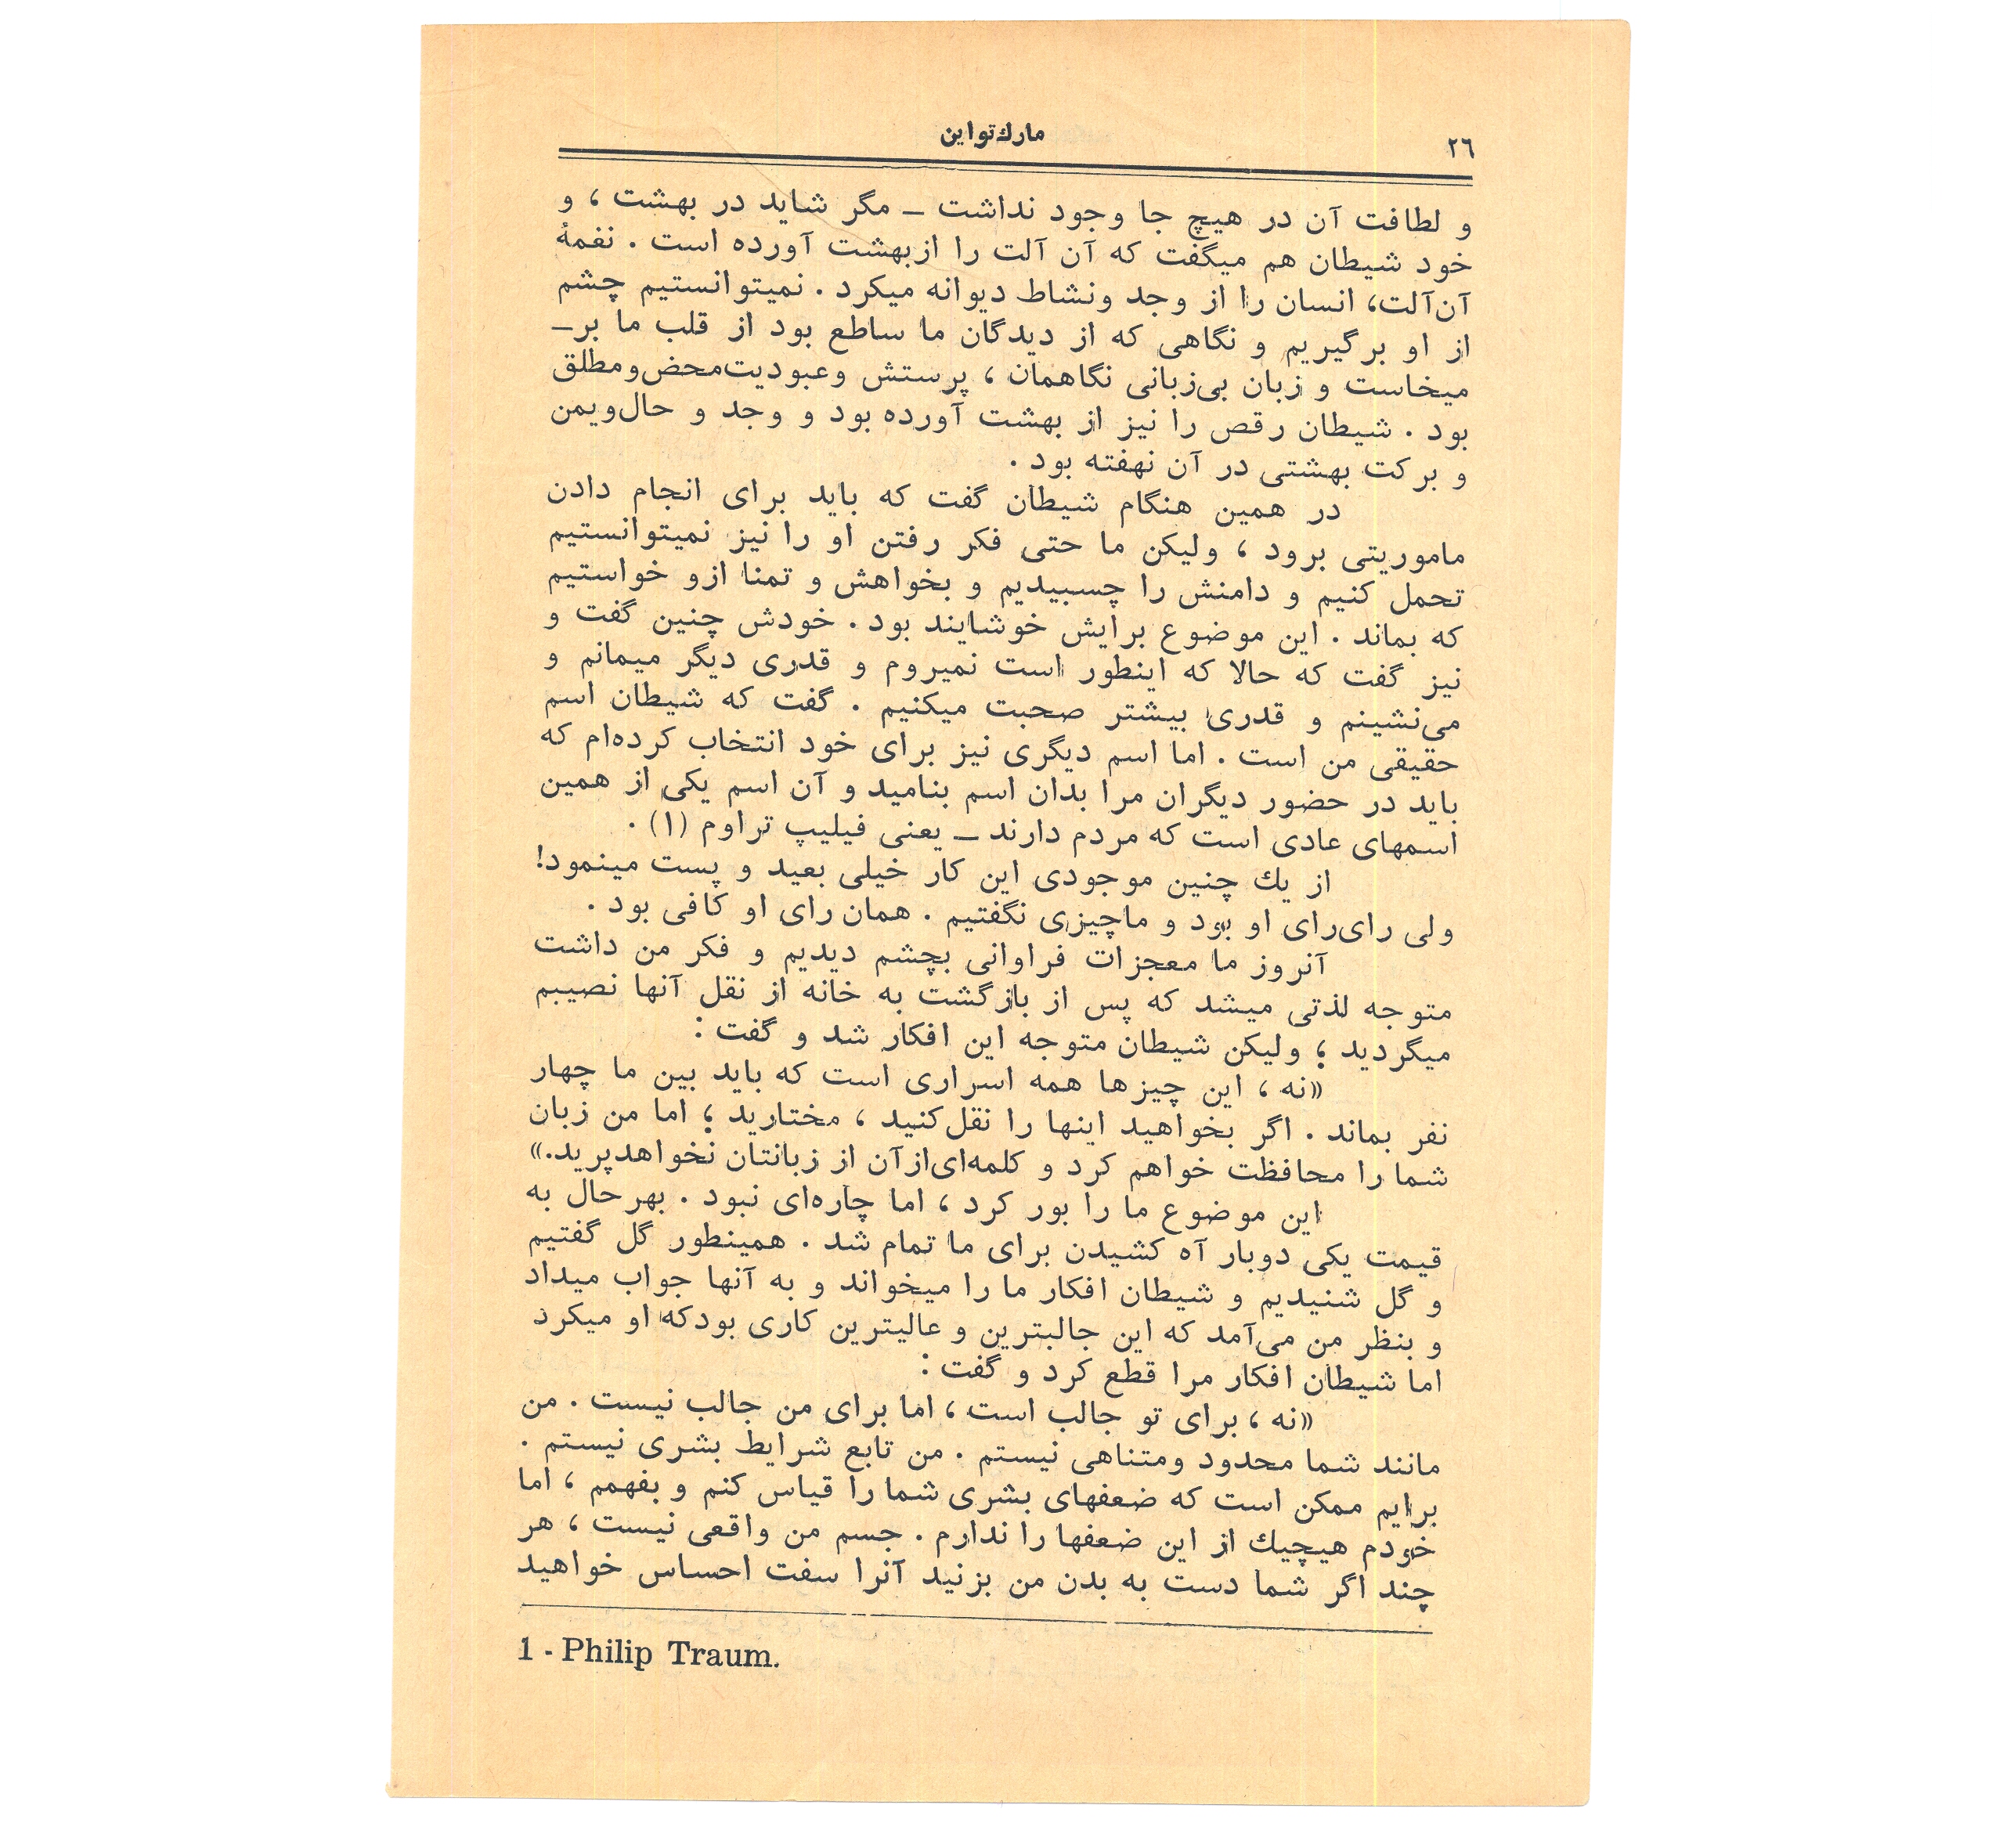 ۲۶
مارك‌تواین
و لطافت آن در هیچ جا وجود نداشت ــ مگر شاید در بهشت ، و
خود شیطان هم میگفت که آن آلت را ازبهشت آورده است . نغمهٔ
آن‌آلت، انسان را از وجد ونشاط دیوانه میکرد . نمیتوانستیم چشم
از او برگیریم و نگاهی که از دیدگان ما ساطع بود از قلب ما بر ــ
میخاست و زبان بی‌زبانی نگاهمان ، پرستش وعبودیت‌محض‌ومطلق
بود . شیطان رقص را نیز از بهشت آورده بود و وجد و حال‌ویمن
و برکت بهشتی در آن نهفته بود .
در همین هنگام شیطان گفت که باید برای انجام دادن
ماموریتی برود ، ولیکن ما حتی فکر رفتن او را نیز نمیتوانستیم
تحمل کنیم و دامنش را چسبیدیم و بخواهش و تمنا ازو خواستیم
که بماند . این موضوع برایش خوشایند بود . خودش چنین گفت و
نیز گفت که حالا که اینطور است نمیروم و قدری دیگر میمانم و
می‌نشینم و قدری بیشتر صحبت میکنیم . گفت که شیطان اسم
حقیقی من است . اما اسم دیگری نیز برای خود انتخاب کرده‌ام که
باید در حضور دیگران مرا بدان اسم بنامید و آن اسم یکی از همین
اسمهای عادی است که مردم دارند ــ یعنی فیلیپ تراوم (۱) .
از یك چنین موجودی این کار خیلی بعید و پست مینمود!
ولی رای‌رای او بود و ماچیزی نگفتیم . همان رای او کافی بود .
آنروز ما معجزات فراوانی بچشم دیدیم و فکر من داشت
متوجه لذتی میشد که پس از بازگشت به خانه از نقل آنها نصیبم
میگردید ؛ ولیکن شیطان متوجه این افکار شد و گفت :
«نه ، این چیزها همه اسراری است که باید بین ما چهار
نفر بماند . اگر بخواهید اینها را نقل‌کنید ، مختارید ؛ اما من زبان
شما را محافظت خواهم کرد و کلمه‌ای‌ازآن از زبانتان نخواهدپرید.»
این موضوع ما را بور کرد ، اما چاره‌ای نبود . بهرحال به
قیمت یکی دوبار آه کشیدن برای ما تمام شد . همینطور گل گفتیم
و گل شنیدیم و شیطان افکار ما را میخواند و به آنها جواب میداد
و بنظر من می‌آمد که این جالبترین و عالیترین کاری بودکه او میکرد
اما شیطان افکار مرا قطع کرد و گفت :
«نه ، برای تو جالب است ، اما برای من جالب نیست . من
مانند شما محدود ومتناهی نیستم . من تابع شرایط بشری نیستم .
برایم ممکن است که ضعفهای بشری شما را قیاس کنم و بفهمم ، اما
خودم هیچیك از این ضعفها را ندارم . جسم من واقعی نیست ، هر
چند اگر شما دست به بدن من بزنید آنرا سفت احساس خواهید
1 - Philip Traum.